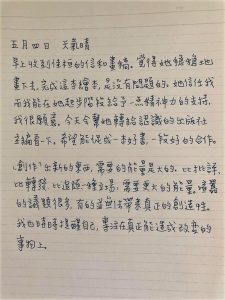 五月四日 天氣晴
早上收到佳穎的信和畫稿,覺得她慢慢地
畫下去,完成這本繪本,是沒有問題的。她信任我
而我能在她起步階段給予一點精神上的支持,
我很願意,今天會幫她轉給認識的出版社
主編看一下,希望能促成一本好書,一段好的合作。
創作出新的東西,需要的能量是大的。比批評、
比轉發、比追隨一種立場,需要更大的能量。喧囂
的議題很多,有的並無法帶來真正的創造性。
我也時時提醒自己,專注在真正能造成改變的
事物上。